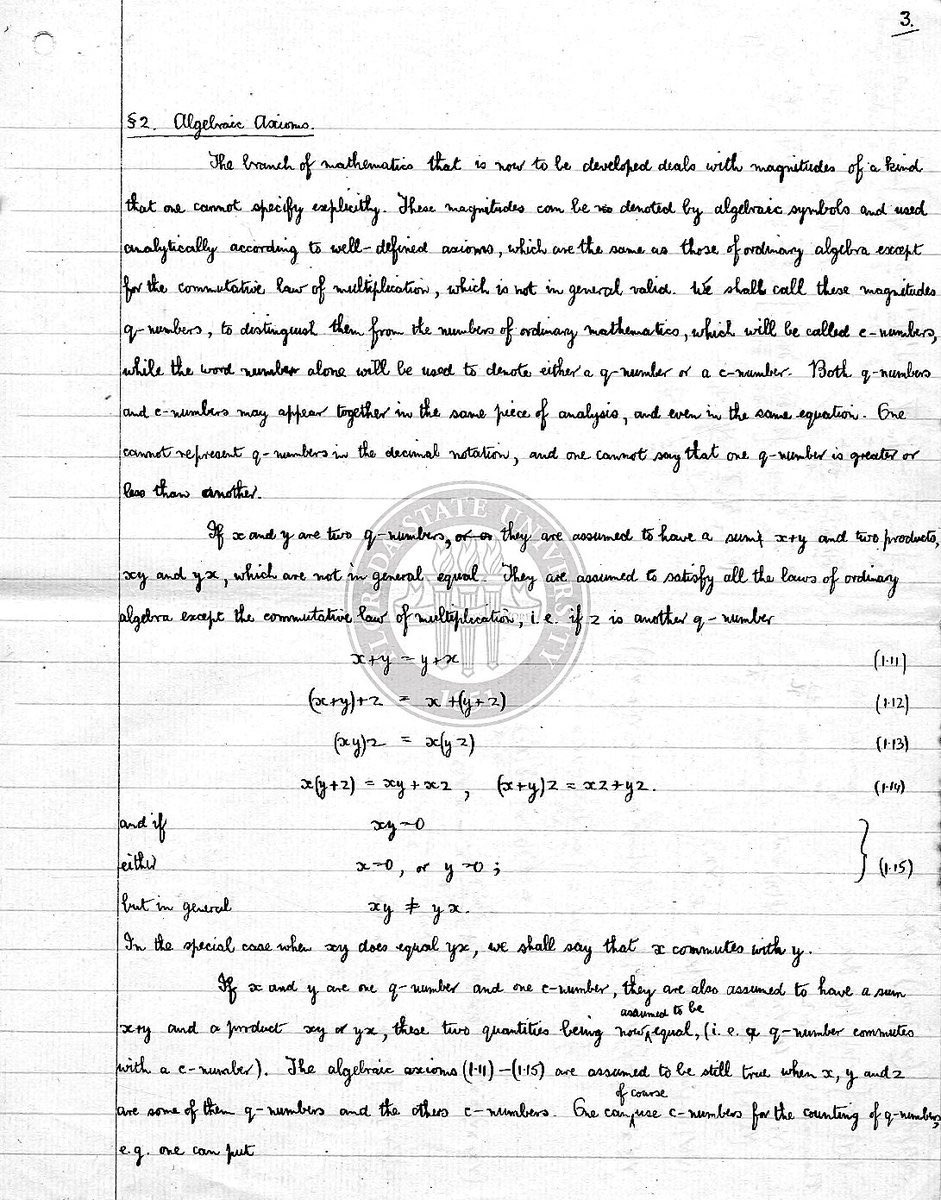 3.
§2. Algebraic Axioms.
The branch of mathematics that is now to be developed deals with magnitudes of a kind
that one cannot specify explicitly. These magnitudes can be denoted by algebraic symbols and used
analytically according to well-defined axioms, which are the same as those of ordinary algebra except
for the commutative law of multiplication, which is not in general valid. We shall call these magnitudes
q-numbers, to distinguish them from the numbers of ordinary mathematics, which will be called c-numbers,
while the word number alone will be used to denote either a q-number or a c-number. Both q-numbers
and c-numbers may appear together in the same piece of analysis, and even in the same equation. One
cannot represent q-numbers in the decimal notation, and one cannot say that one q-number is greater or
less than another.
If x and y are two q-numbers, they are assumed to have a sum x+y and two products,
xy and yx, which are not in general equal. They are assumed to satisfy all the laws of ordinary
algebra except the commutative law of multiplication, i.e. if z is another q-number
x+y = y+x (1·11)
(x+y)+z = x+(y+z) (1·12)
(xy)z = x(yz) (1·13)
x(y+z) = xy+xz, (x+y)z = xz+yz. (1·14)
and if xy=0
either x=0, or y=0; } (1·15)
but in general xy ≠ yx.
In the special case when xy does equal yx, we shall say that x commutes with y.
If x and y are one q-number and one c-number, they are also assumed to have a sum
assumed to be
x+y and a product xy or yx, these two quantities being now equal, (i.e. a q-number commutes
with a c-number). The algebraic axioms (1·11)–(1·15) are assumed to be still true when x, y and z
of course
are some of them q-numbers and the others c-numbers. One can use c-numbers for the counting of q-numbers,
e.g. one can put
FLORIDA STATE UNIVERSITY
1851